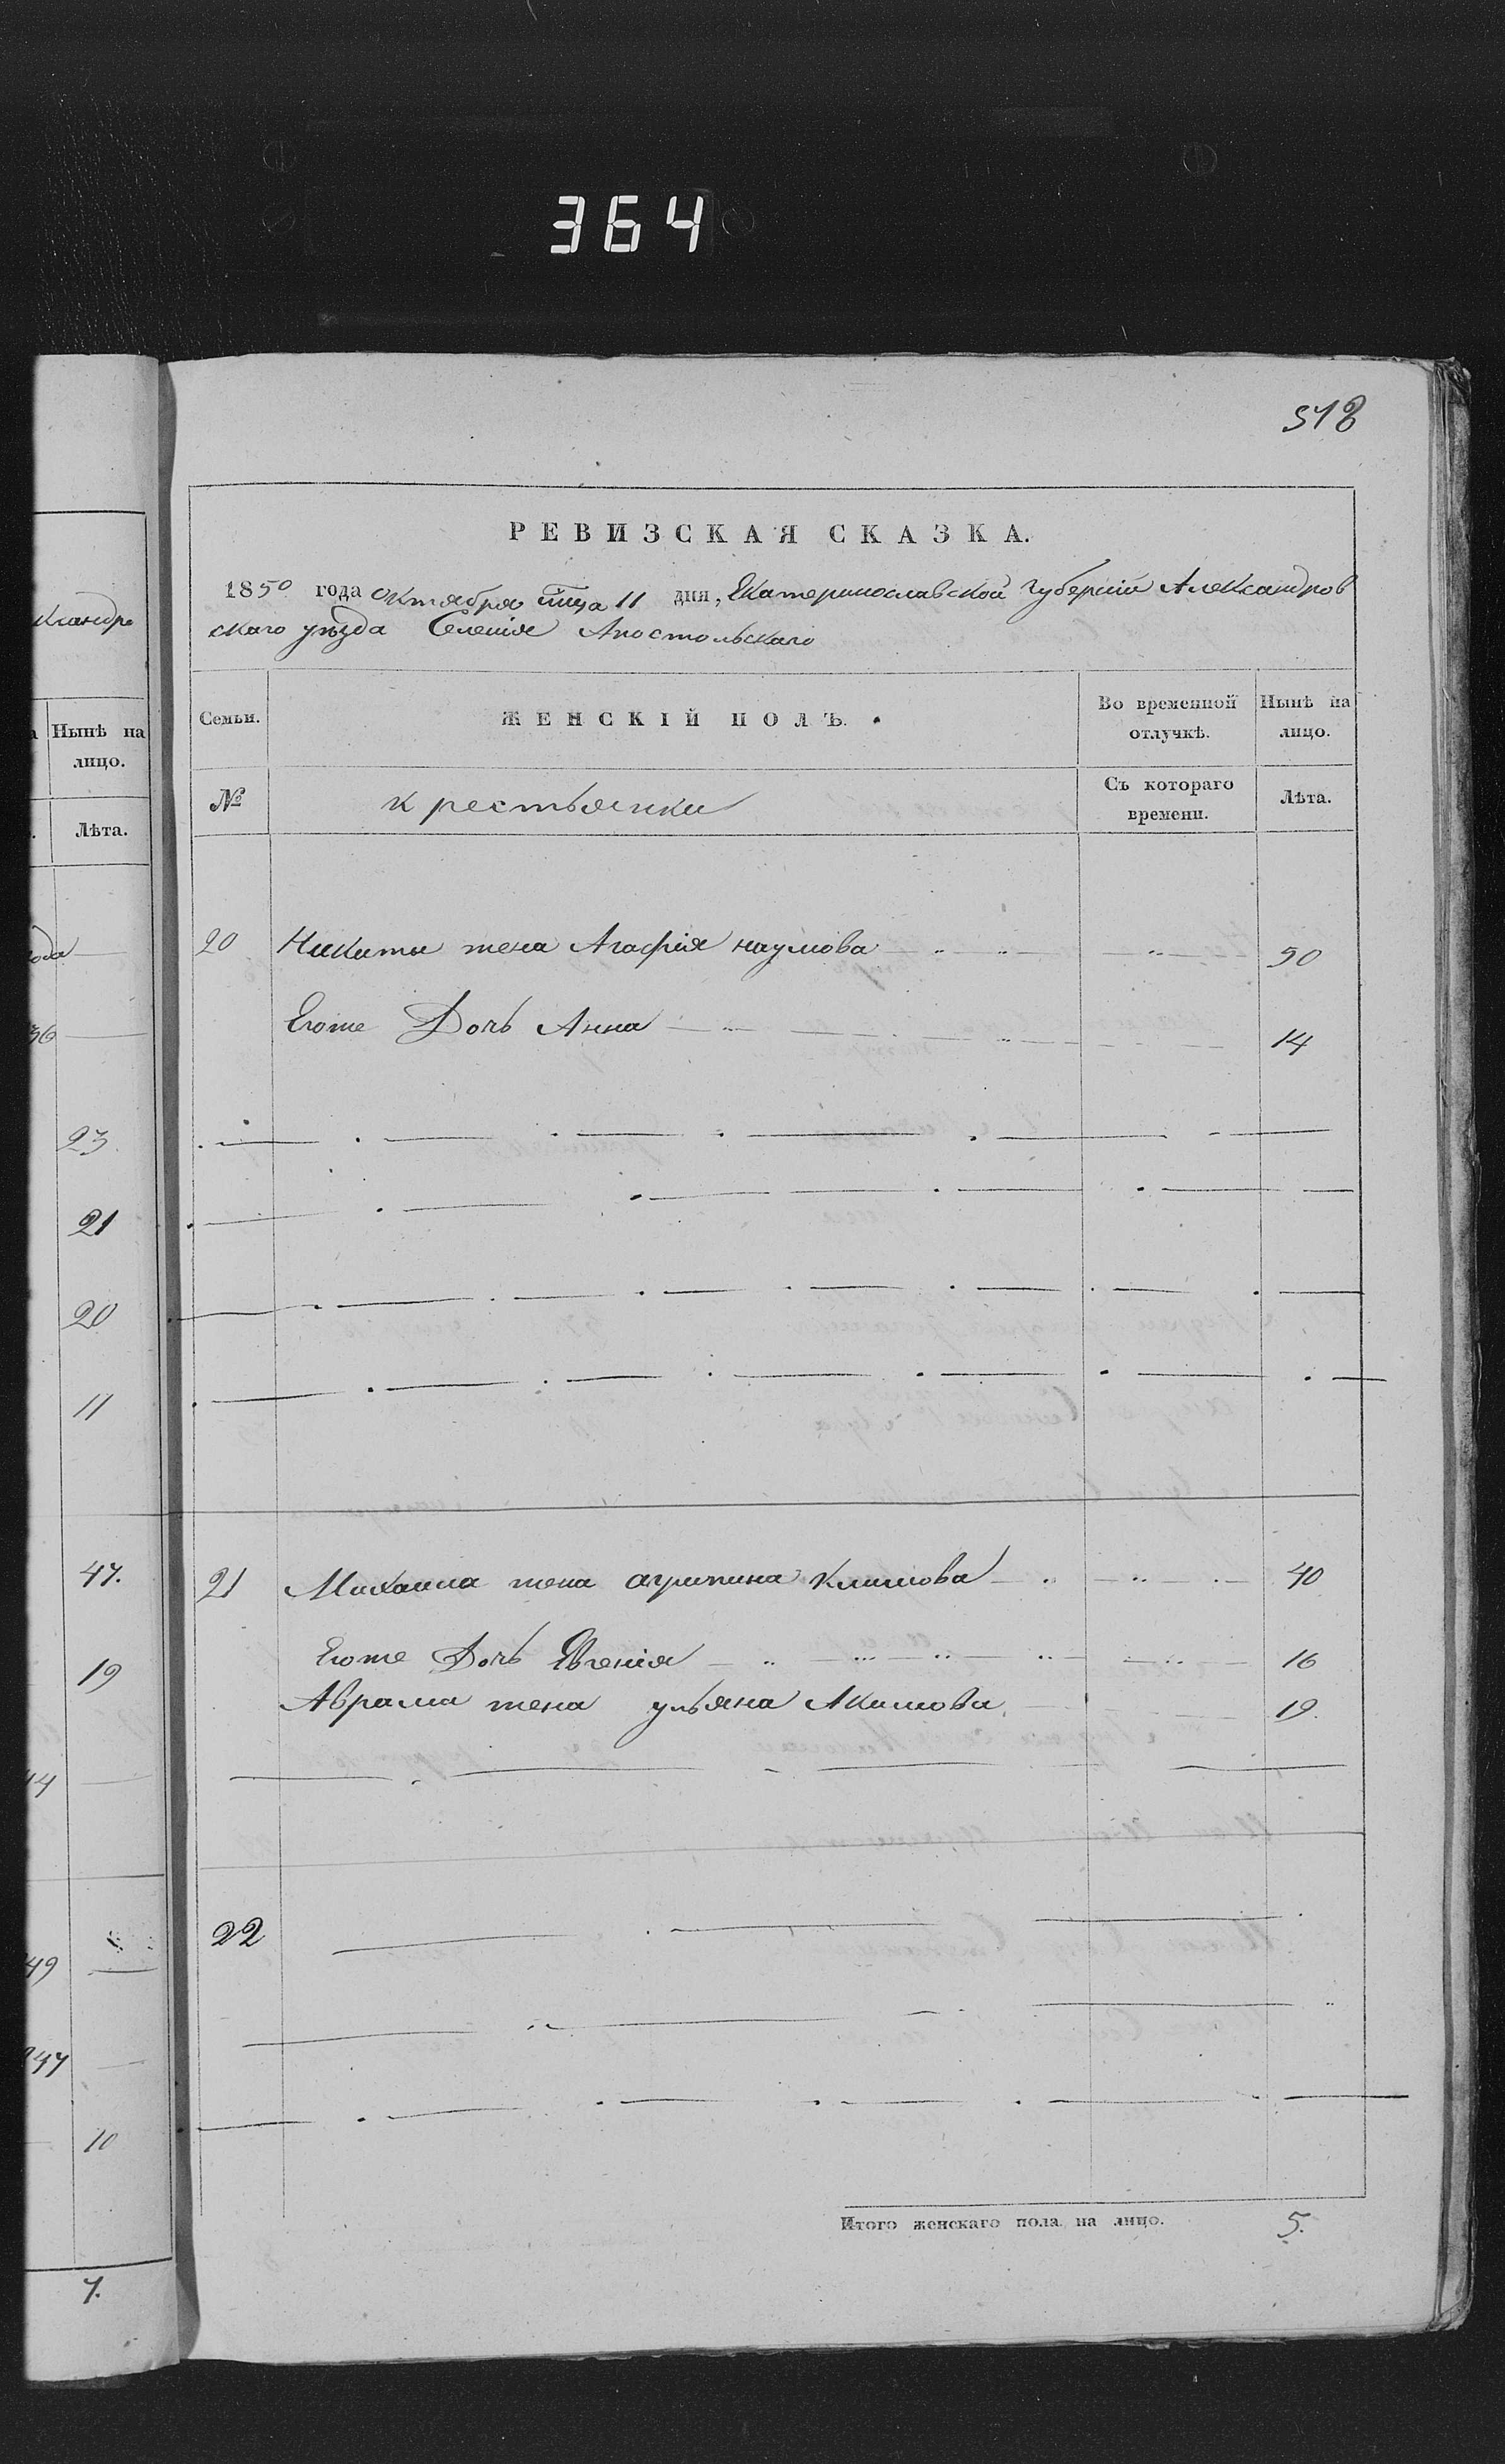 364
518
РЕВИЗСКАЯ СКАЗКА.
1850 года октября мца 11 дня, Екатеринославской губерніи Александров
скаго уѣзда Селенія Апостольскаго
кландро
Семьи. ЖЕНСКІЙ ПОЛЪ. Во временной отлучкѣ. Нынѣ на лицо.
Нынѣ на лицо.
№ крестьянки Съ котораго времени. Лѣта.
Лѣта.
20 Никиты жена Агафія наумова 50
Егоже Дочь Анна 14
36
23
21
20
11
47.
19
21 Михаила жена агрипина Климова 40
Егоже Дочь Евгенія 16
Аврама жена ульяна Акимова 19.
44
22
49
10
Итого женскаго пола на лицо. 5.
7.